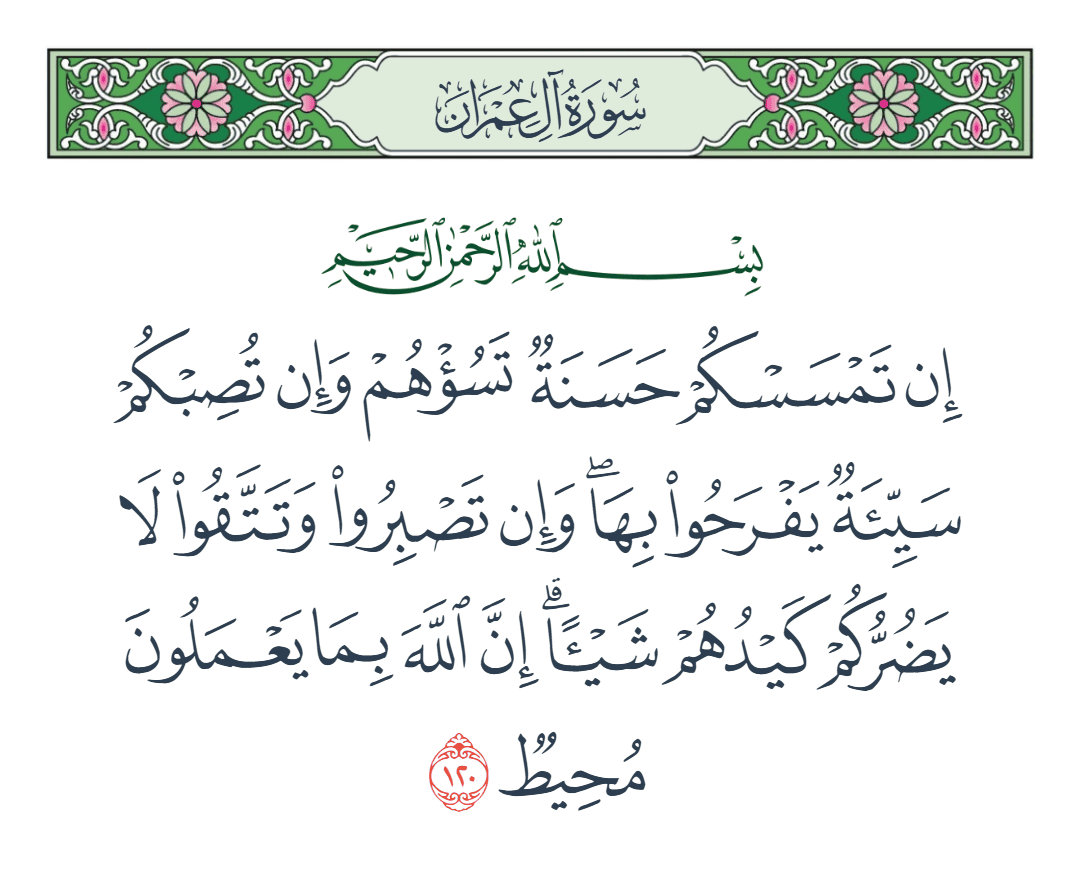 سُورَةُ آلِ عِمۡرَانَ
بِسۡمِ ٱللَّهِ ٱلرَّحۡمَٰنِ ٱلرَّحِيمِ
إِن تَمۡسَسۡكُمۡ حَسَنَةٞ تَسُؤۡهُمۡ وَإِن تُصِبۡكُمۡ
سَيِّئَةٞ يَفۡرَحُواْ بِهَاۖ وَإِن تَصۡبِرُواْ وَتَتَّقُواْ لَا
يَضُرُّكُمۡ كَيۡدُهُمۡ شَيۡـًٔاۗ إِنَّ ٱللَّهَ بِمَا يَعۡمَلُونَ
مُحِيطٞ ١٢٠